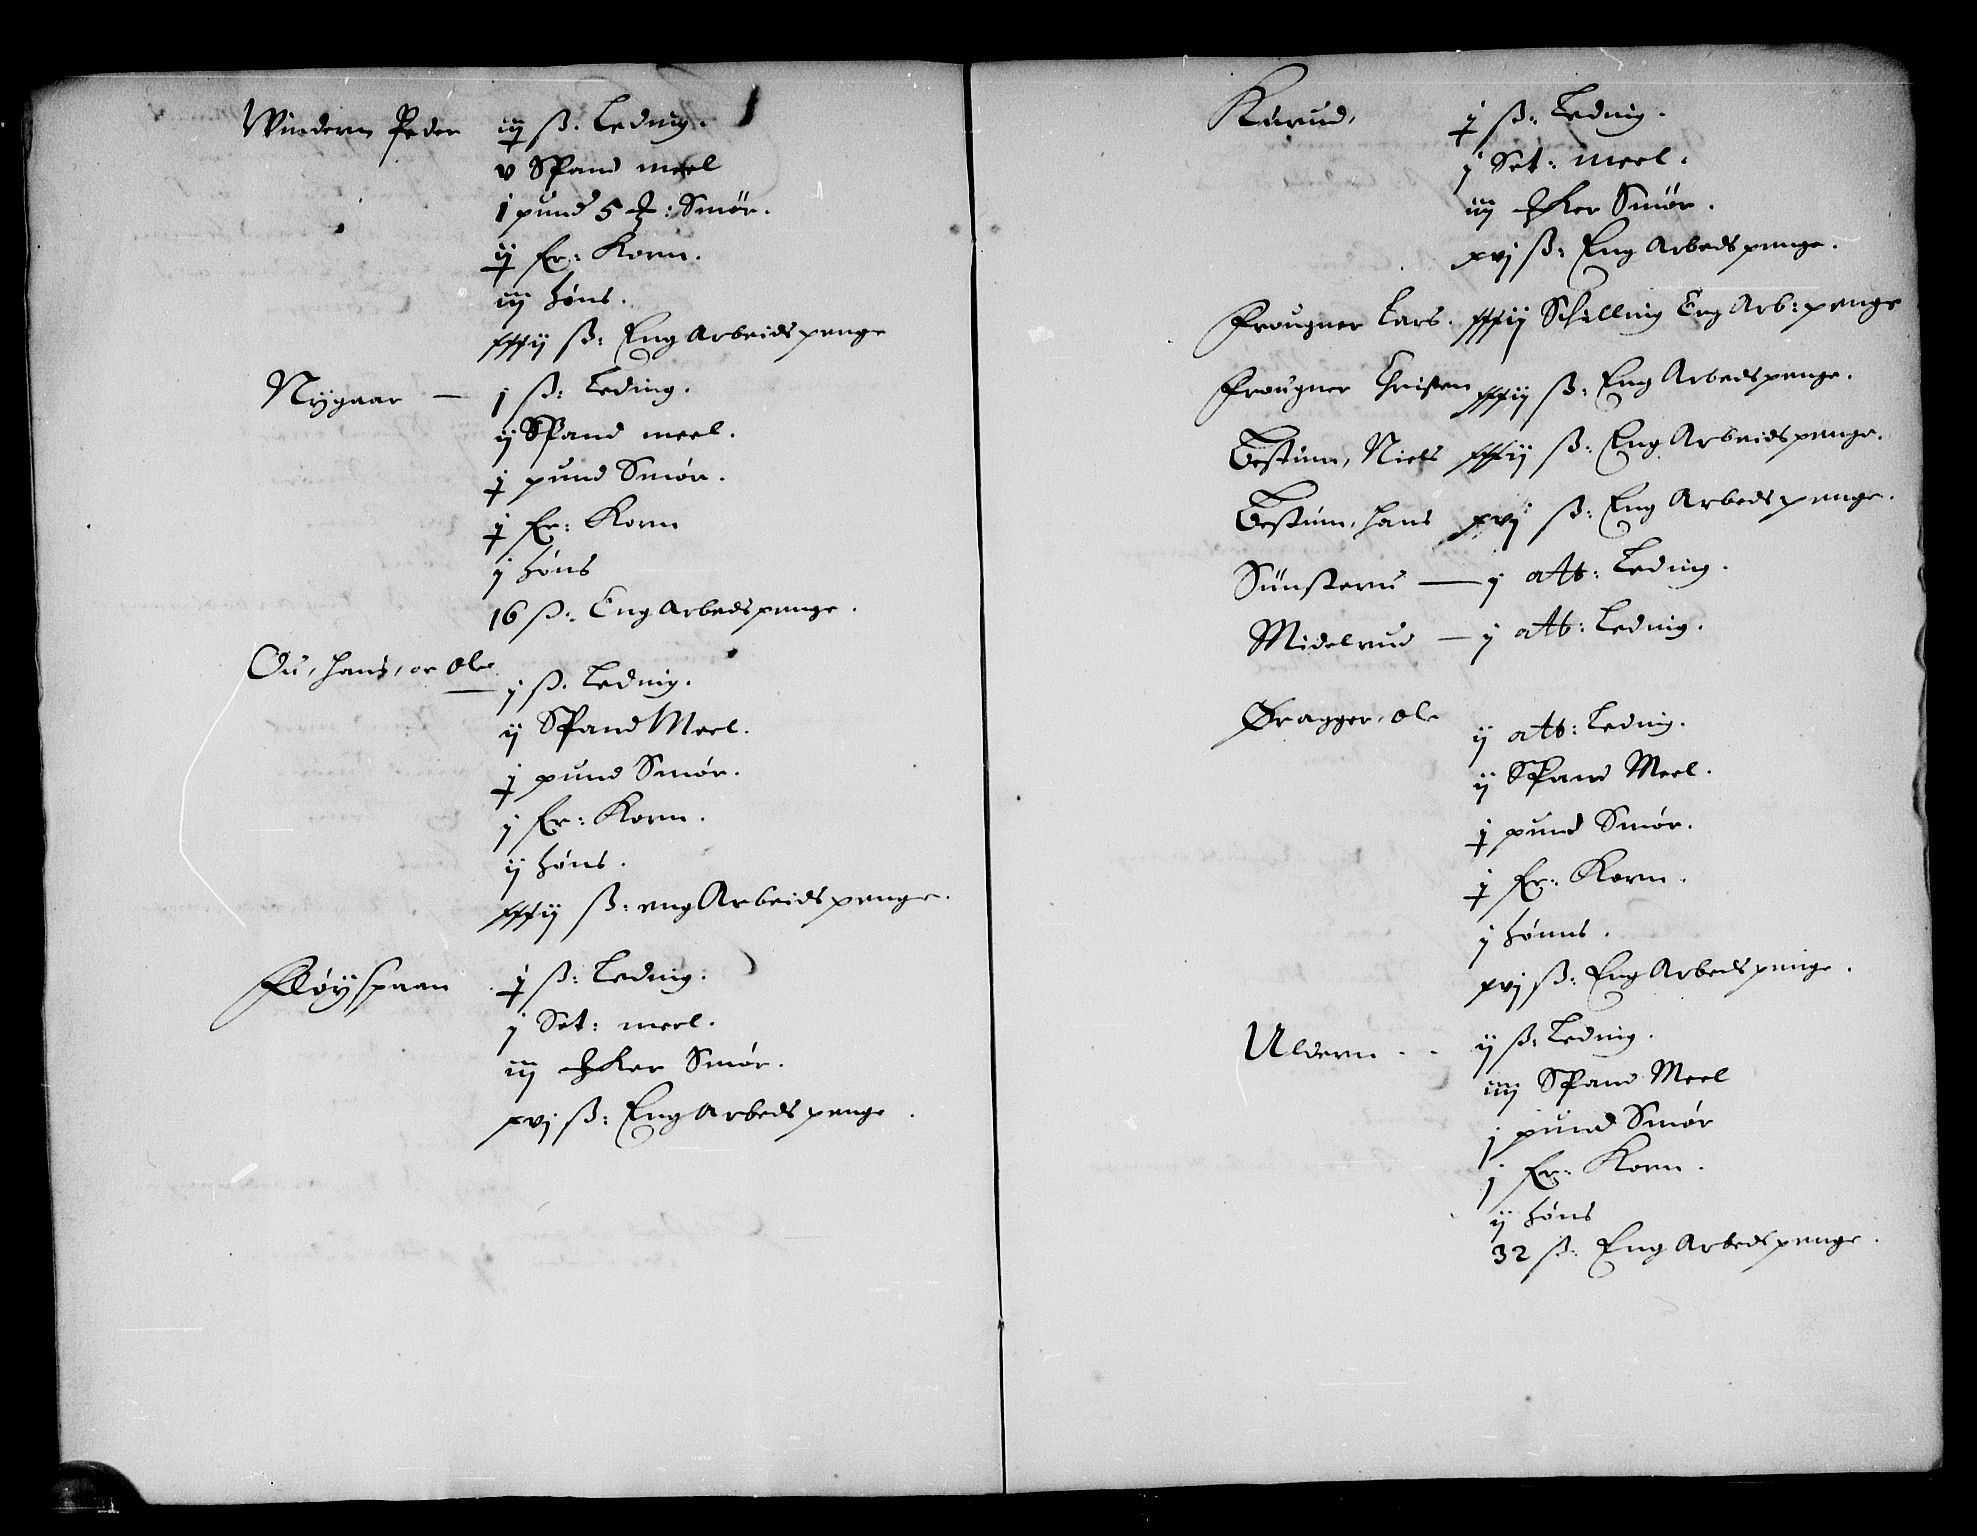 Windern Peder iij ß. Leding.
v Spand meel
1 pund 5 ℔: Smør.
ij fr: Korn.
iiij høns.
xxxij ß: Eng Arbeidspenge
Nygaar — j ß: Leding.
ij Spand meel.
j pund Smør.
j fr: Korn
j høns
16 ß: Eng Arbedspenge.
Ou, Hans, oc Ole — j ß. Leding.
ij Spand Meel.
j pund Smør.
j fr: Korn.
ij høns.
xxxij ß: eng Arbeids penge.
Fløyspaan j ß: Leding.
j Set: meel.
iij mker Smør.
xvj ß: Eng Arbeds penge.
Kurud, j ß: Leding.
j Set: meel.
iiij mker Smør.
xvj ß: Eng Arbedspenge.
Frougner Lars. xxxij Schilling Eng Arb: penge
Frougner Christen xxxij ß: Eng Arbedspenge.
Bestum, Niels xxxij ß: Eng Arbeidspenge.
Bestum, Hans xvj ß: Eng Arbeds penge.
Sünsteru — j alb: Leding.
Midelrud — j alb: Leding.
Dragger, Ole ij alb: Leding.
ij Spand Meel.
j pund Smør.
j fr: Korn.
j hønns.
xvj ß: Eng Arbedspenge.
Uldern . . ij ß: Leding.
iiij Spand Meel
j pund Smør
j fr: Korn.
ij høns
32 ß: Eng Arbedspenge.